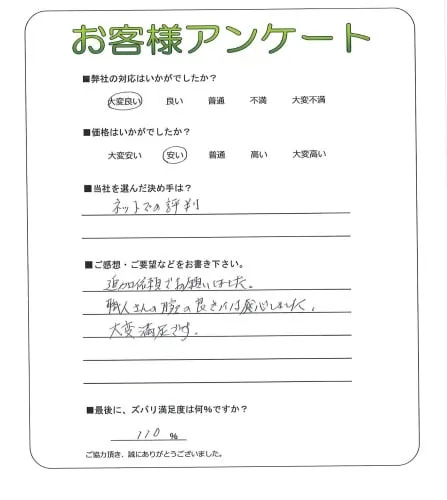 お客様アンケート
■弊社の対応はいかがでしたか？
大変良い 良い 普通 不満 大変不満
■価格はいかがでしたか？
大変安い 安い 普通 高い 大変高い
■当社を選んだ決め手は？
ネットでの評判
■ご感想・ご要望などをお書き下さい。
追加依頼でお願いしました。
職人さんの腕の良さには感心しました。
大変満足です。
■最後に、ズバリ満足度は何%ですか？
110 %
ご協力頂き、誠にありがとうございました。